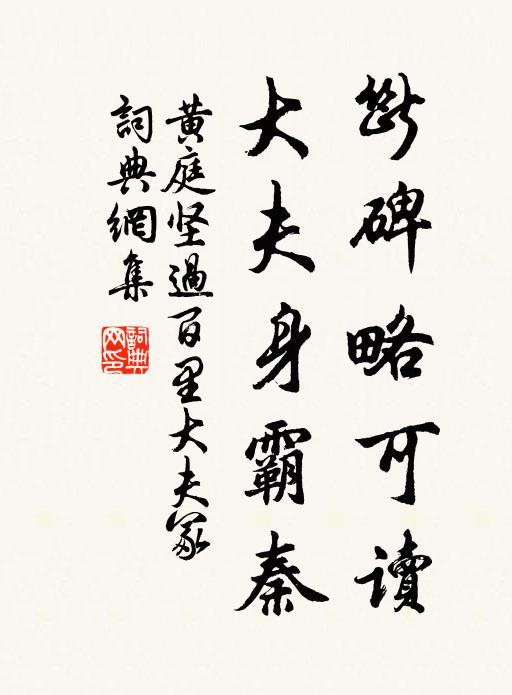 斷碑略可讀
大夫身霸秦
黄庭坚過百里大夫冢
詞典網集
詞典网印